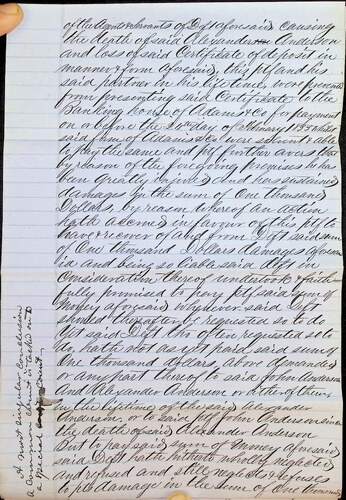 of the Agents & servants of Deft aforesaid causing
the death of said Alexander Anderson
and loss of said Certificate of deposit in
manner & form aforesaid, this plf and his
said partner in his life time, were prevented
from presenting said Certificate to the
Banking house of Adams & Co for payment
on or before the day of February 1855 whilst
said firm of Adams & Co were solvent & able
to pay the same and plf further avers that
by reason of the foregoing premises he has
been greatly injured and has sustained
damages in the sum of One thousand
Dollars, by reason whereof an action
hath accrued in favour of this plf to
have & recover of and from Deft said sum
of One thousand Dollars damages aforesa
id and being so liable said deft in
Consideration thereof undertook & faith
fully promised to pay plf said sum of
money aforesaid Whenever said deft
should thereunto be requested so to do
Yet said Deft tho often requested so to
do, hath not as yet paid said sum of
One thousand dollars above demanded
or any part thereof to said John Anderson
and Alexander Anderson or either of them
in the lifetime of the said Alexander
Anderson, or to said plf John Anderson since
the death of said Alexander Anderson
But to pay said sum of money aforesaid
said Deft hath hitherto wholly neglected
and refused and still neglects & refuses
to plfs damage in the sum of One thousand
A most singular conclusion
a Common count is tacked on to a
special Count.